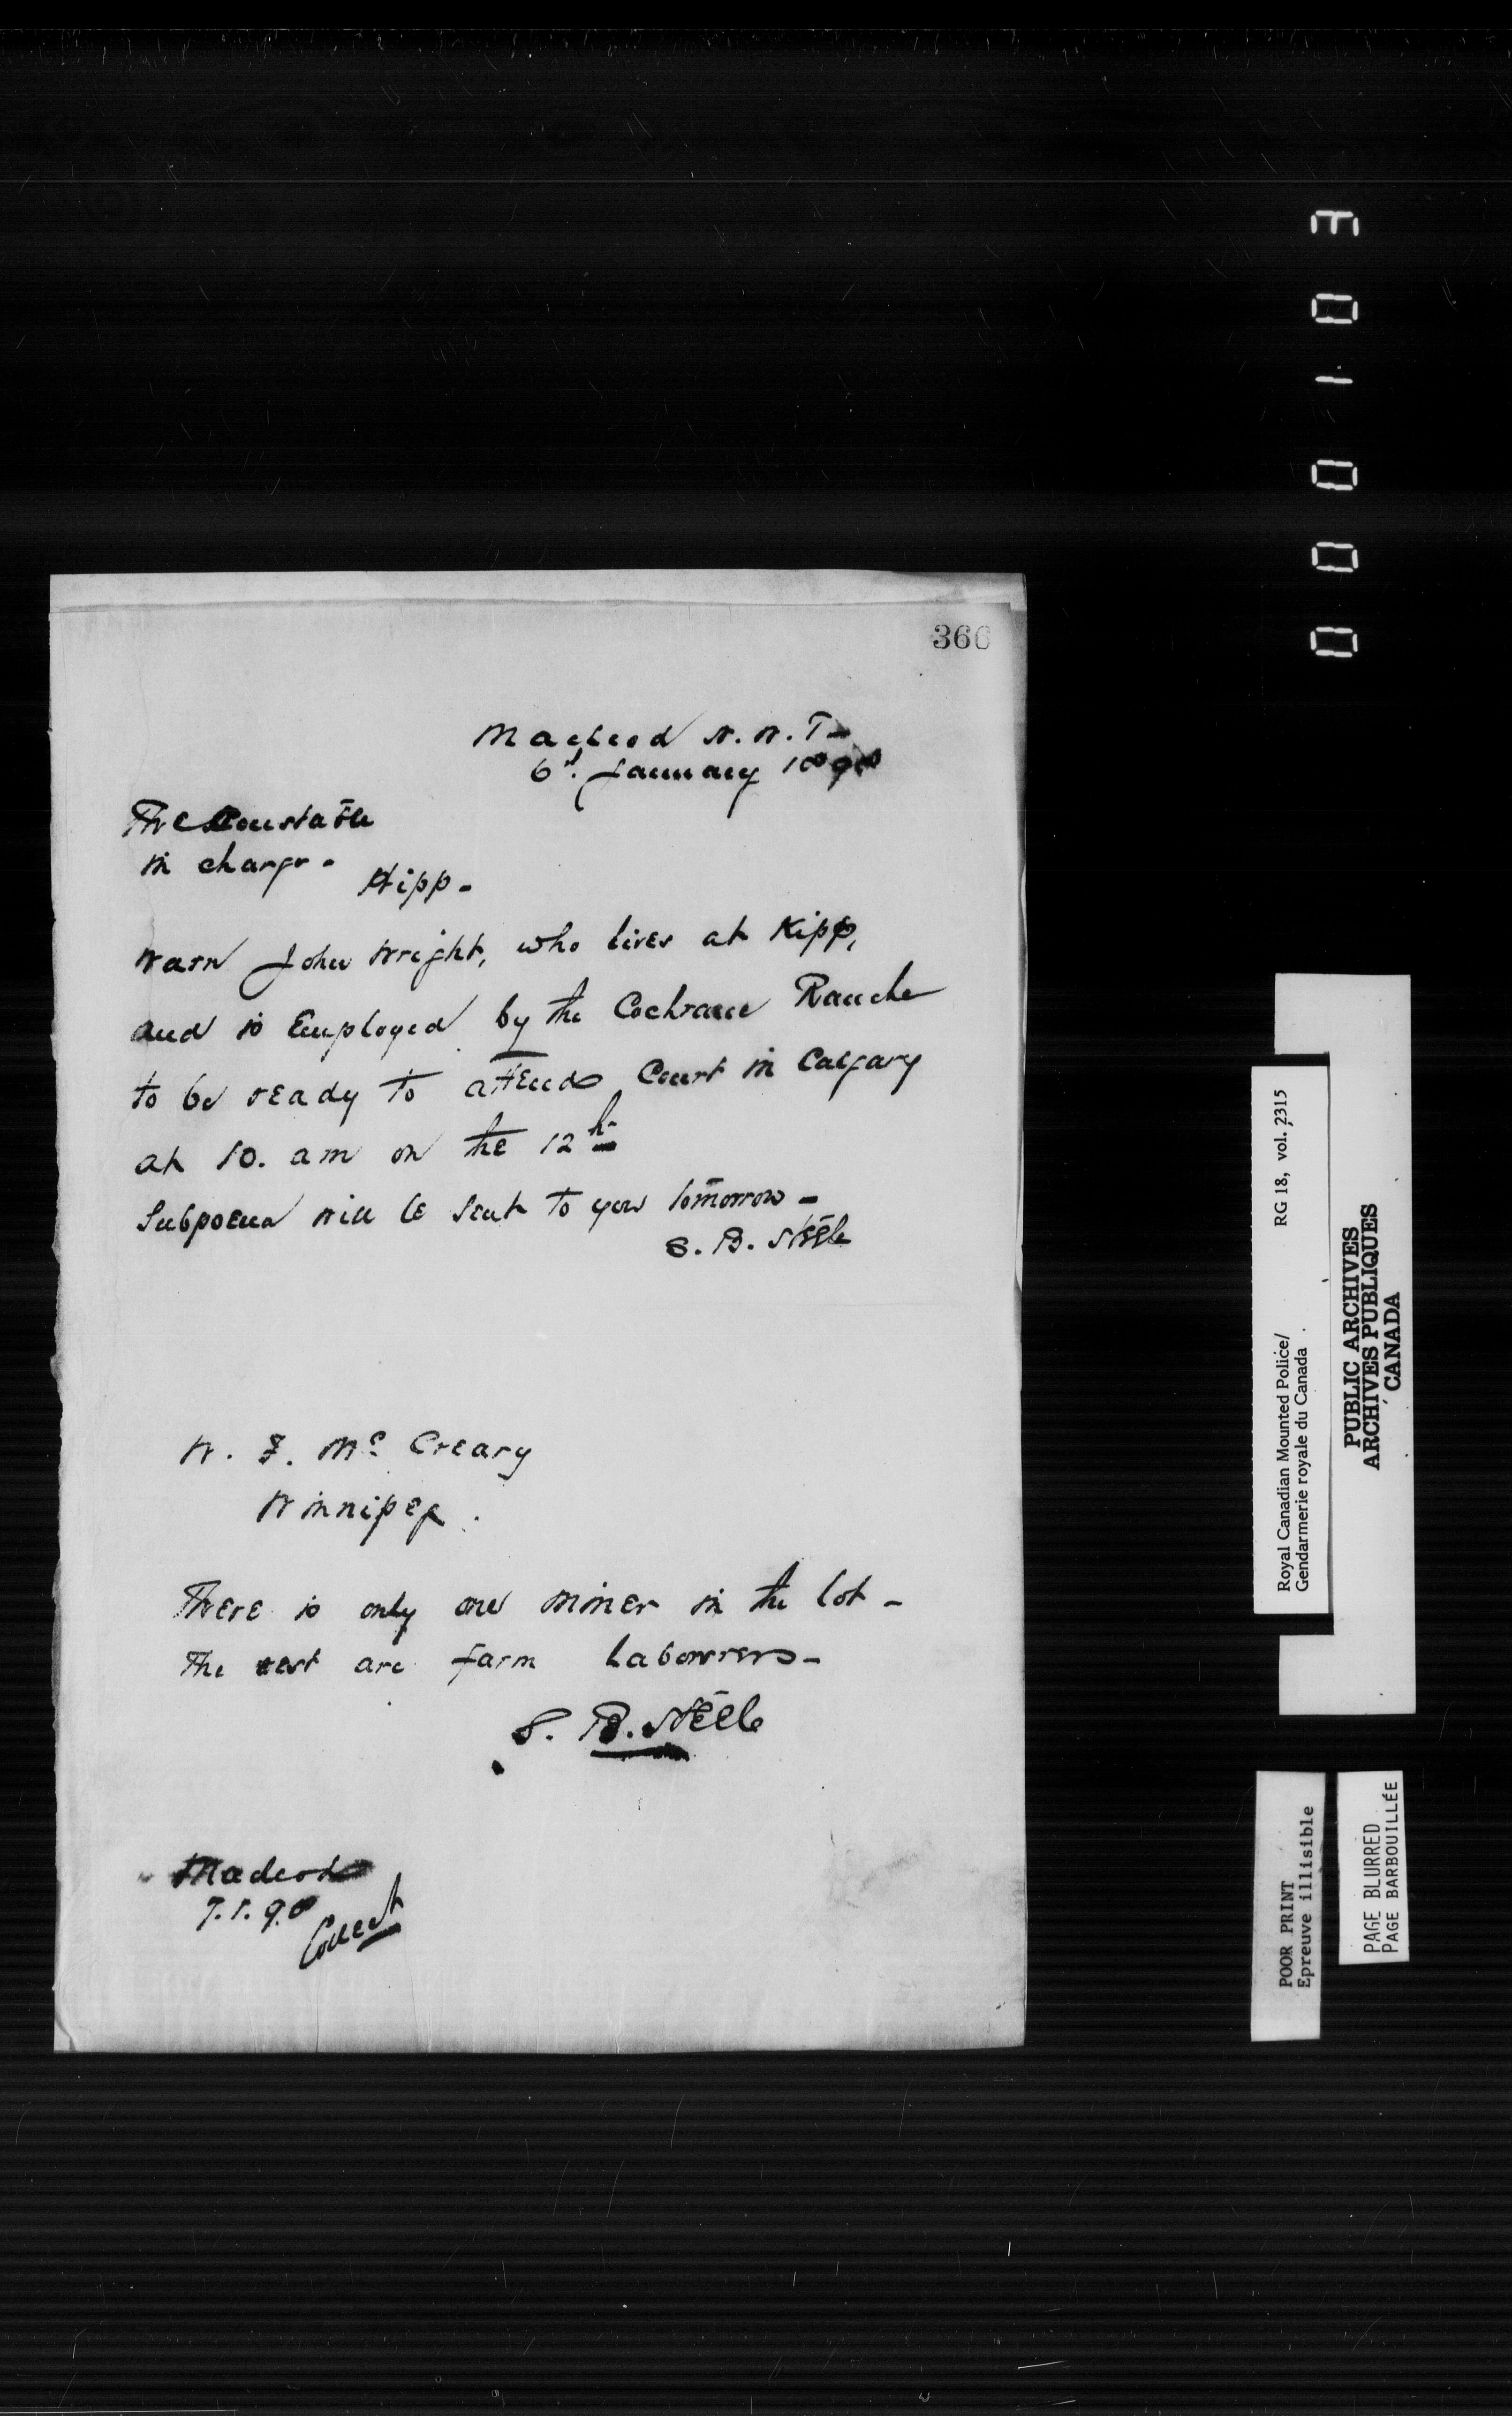 366
Macleod N.W.T-
6th January 1898
The Constable
in charge -
Kipp -
Warn John Wright, who lives at Kipp,
and is Employed by the Cochrane Ranche
to be ready to attend Court in Calgary
at 10. am on the 12th
Subpoena will be sent to you tomorrow -
S. B. Steele
W. F. Mc Creary
Winnipeg.
There is only one miner in the lot -
The rest are farm Labourers -
S. B. Steele
Macleod
7.1.98
Collect
000103
Royal Canadian Mounted Police/ RG 18, vol. 2315
Gendarmerie royale du Canada
PUBLIC ARCHIVES
ARCHIVES PUBLIQUES
CANADA
POOR PRINT
Epreuve illisible
PAGE BLURRED
PAGE BARBOUILLÉE